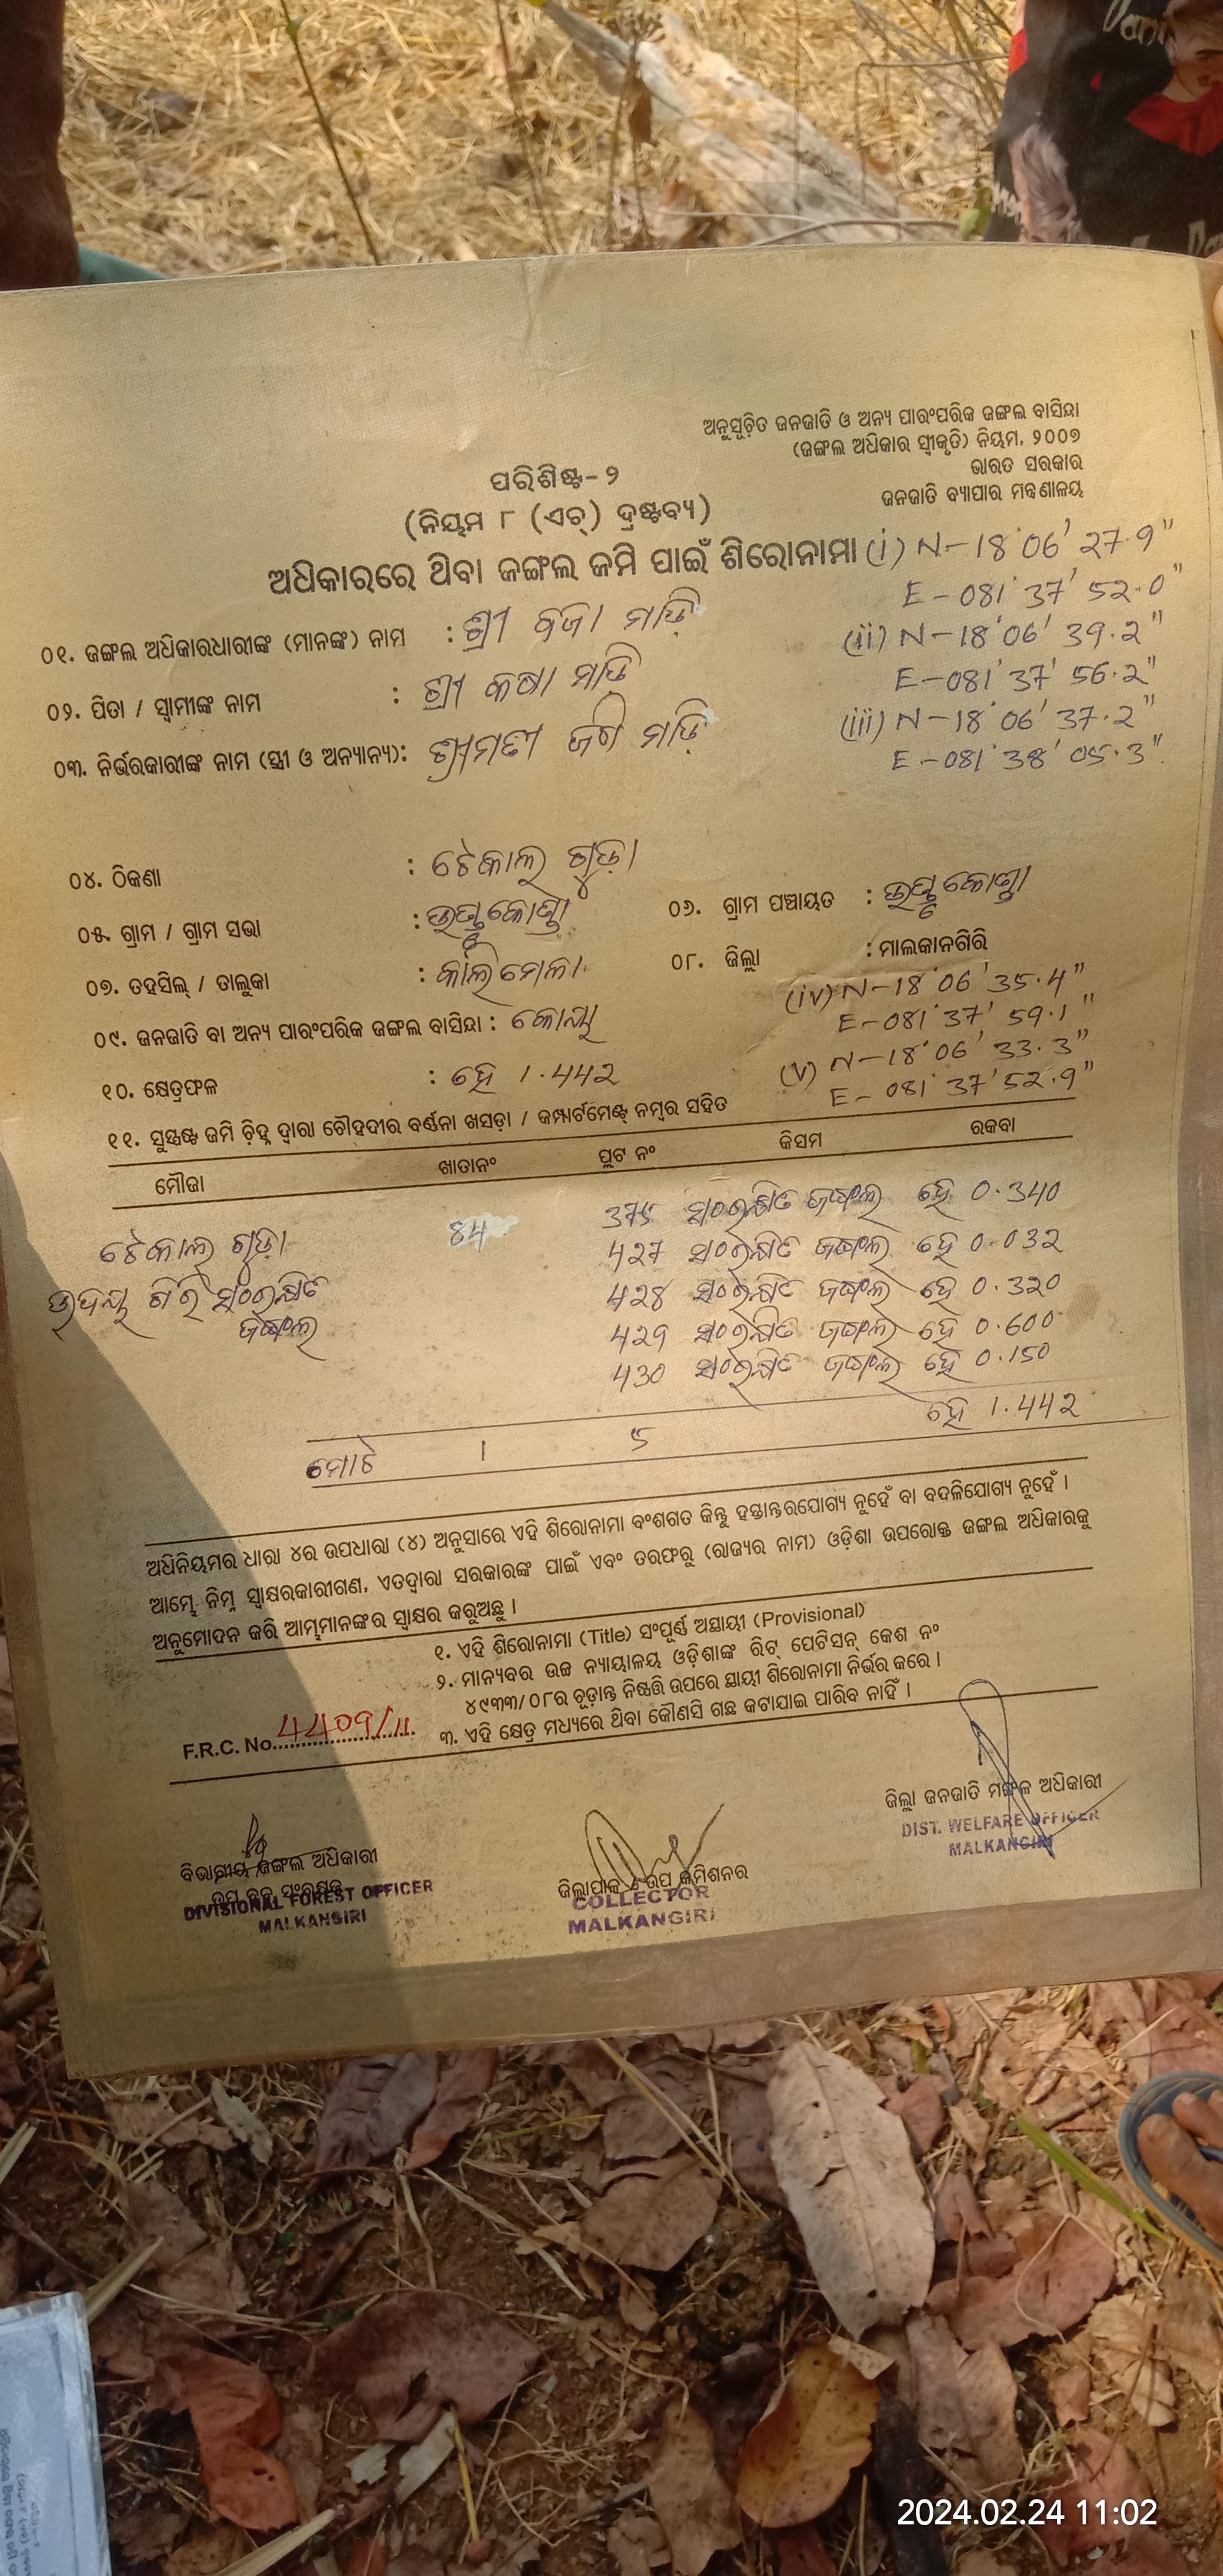 ଅନୁସୂଚିତ ଜନଜାତି ଓ ଅନ୍ୟ ପାରଂପରିକ ଜଙ୍ଗଲ ବାସିନ୍ଦା
(ଜଙ୍ଗଲ ଅଧିକାର ସ୍ୱୀକୃତି) ନିୟମ, ୨୦୦୭
ଭାରତ ସରକାର
ଜନଜାତି ବ୍ୟାପାର ମନ୍ତ୍ରଣାଳୟ
ପରିଶିଷ୍ଟ-୨
(ନିୟମ ୮ (ଏଚ୍) ଦ୍ରଷ୍ଟବ୍ୟ)
ଅଧିକାରରେ ଥିବା ଜଙ୍ଗଲ ଜମି ପାଇଁ ଶିରୋନାମା (i) N-18°06'27.9"
E-081°37'52.0"
୦୧. ଜଙ୍ଗଲ ଅଧିକାରଧାରୀଙ୍କ (ମାନଙ୍କ) ନାମ : ଶ୍ରୀ ମାଡ଼ି
(ii) N-18°06'39.2"
E-081°37'56.2"
୦୨. ପିତା / ସ୍ୱାମୀଙ୍କ ନାମ : ଶ୍ରୀ ମାଡି
(iii) N-18°06'37.2"
E-081°38'05.3"
୦୩. ନିର୍ଭରକାରୀଙ୍କ ନାମ (ସ୍ତ୍ରୀ ଓ ଅନ୍ୟାନ୍ୟ): ଶ୍ରୀମତୀ ମାଡ଼ି
୦୪. ଠିକଣା : ଟେକାଲ ଗୁଡ଼ା
୦୫. ଗ୍ରାମ / ଗ୍ରାମ ସଭା :
୦୬. ଗ୍ରାମ ପଞ୍ଚାୟତ :
୦୭. ତହସିଲ୍ / ତାଲୁକା : କାଲିମେଳା
୦୮. ଜିଲ୍ଲା : ମାଲକାନଗିରି
(iv) N-18°06'35.4"
E-081°37'59.1"
୦୯. ଜନଜାତି ବା ଅନ୍ୟ ପାରଂପରିକ ଜଙ୍ଗଲ ବାସିନ୍ଦା : କୋୟା
(v) N-18°06'33.3"
E-081°37'52.9"
୧୦. କ୍ଷେତ୍ରଫଳ : ହେ 1.442
୧୧. ସୁସ୍ପଷ୍ଟ ଜମି ଚିହ୍ନ ଦ୍ୱାରା ଚୌହଦୀର ବର୍ଣ୍ଣନା ଖସଡ଼ା / କମ୍ପାର୍ଟମେଣ୍ଟ୍ ନମ୍ବର ସହିତ
ମୌଜା ଖାତାନଂ ପ୍ଲଟ ନଂ କିସମ ରକବା
ଟେକାଲ ଗୁଡ଼ା 84 375 ସଂରକ୍ଷିତ ଜଙ୍ଗଲ ହେ 0.340
427 ସଂରକ୍ଷିତ ଜଙ୍ଗଲ ହେ 0.032
ଉଦୟ ଗିରି ସଂରକ୍ଷିତ 428 ସଂରକ୍ଷିତ ଜଙ୍ଗଲ ହେ 0.320
ଜଙ୍ଗଲ 429 ସଂରକ୍ଷିତ ଜଙ୍ଗଲ ହେ 0.600
430 ସଂରକ୍ଷିତ ଜଙ୍ଗଲ ହେ 0.150
ମୋଟ 1 5 ହେ 1.442
ଅଧିନିୟମର ଧାରା ୪ର ଉପଧାରା (୪) ଅନୁସାରେ ଏହି ଶିରୋନାମା ବଂଶଗତ କିନ୍ତୁ ହସ୍ତାନ୍ତରଯୋଗ୍ୟ ନୁହେଁ ବା ବଦଳିଯୋଗ୍ୟ ନୁହେଁ ।
ଆମ୍ଭେ ନିମ୍ନ ସ୍ୱାକ୍ଷରକାରୀଗଣ, ଏତଦ୍ଵାରା ସରକାରଙ୍କ ପାଇଁ ଏବଂ ତରଫରୁ (ରାଜ୍ୟର ନାମ) ଓଡ଼ିଶା ଉପରୋକ୍ତ ଜଙ୍ଗଲ ଅଧିକାରକୁ
ଅନୁମୋଦନ କରି ଆମ୍ଭମାନଙ୍କର ସ୍ୱାକ୍ଷର କରୁଅଛୁ ।
୧. ଏହି ଶିରୋନାମା (Title) ସଂପୂର୍ଣ୍ଣ ଅସ୍ଥାୟୀ (Provisional)
୨. ମାନ୍ୟବର ଉଚ୍ଚ ନ୍ୟାୟାଳୟ ଓଡ଼ିଶାଙ୍କ ରିଟ୍ ପେଟିସନ୍ କେଶ ନଂ
୪୯୩୩/୦୮ର ଚୂଡ଼ାନ୍ତ ନିଷ୍ପତ୍ତି ଉପରେ ସ୍ଥାୟୀ ଶିରୋନାମା ନିର୍ଭର କରେ ।
୩. ଏହି କ୍ଷେତ୍ର ମଧ୍ୟରେ ଥିବା କୌଣସି ଗଛ କଟାଯାଇ ପାରିବ ନାହିଁ ।
F.R.C. No. 4409/11
ଜିଲ୍ଲା ଜନଜାତି ମଙ୍ଗଳ ଅଧିକାରୀ
DIST. WELFARE OFFICER
MALKANGIRI
ବିଭାଗୀୟ ଜଙ୍ଗଲ ଅଧିକାରୀ
DIVISIONAL FOREST OFFICER
MALKANGIRI
ଜିଲ୍ଲାପାଳ ଉପ କମିଶନର
COLLECTOR
MALKANGIRI
2024.02.24 11:02